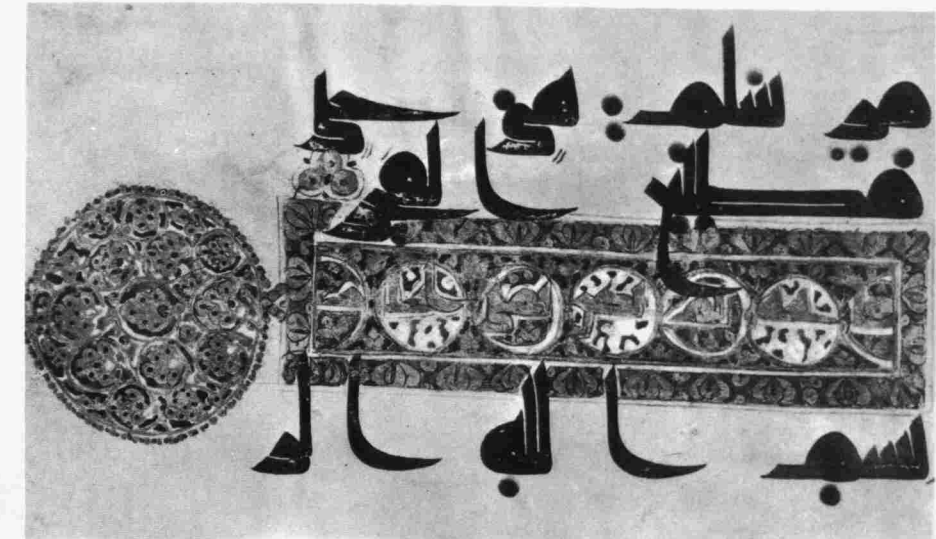 مر سلم هى حتى
مطلع الفجر
بسم الله الر